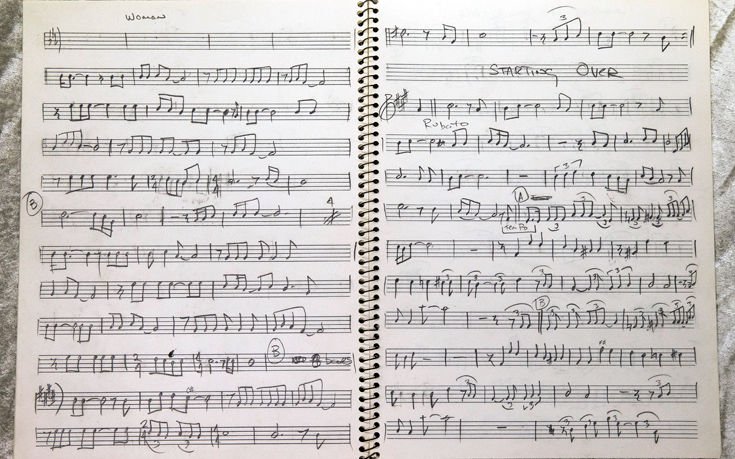 Woman
B
4
B
3
STARTING OVER
Rubato
3
A
Tempo
3
B